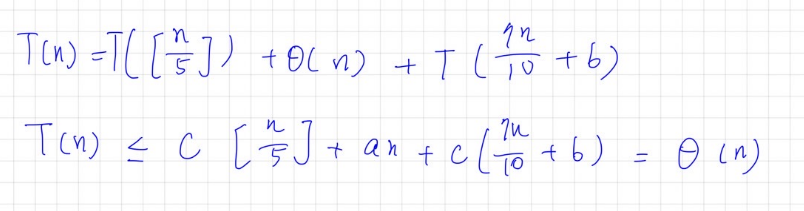 T(n) = T([n/5]) + θ(n) + T(7n/10 + 6)
T(n) ≤ C [n/5] + an + c(7n/10 + 6) = θ(n)